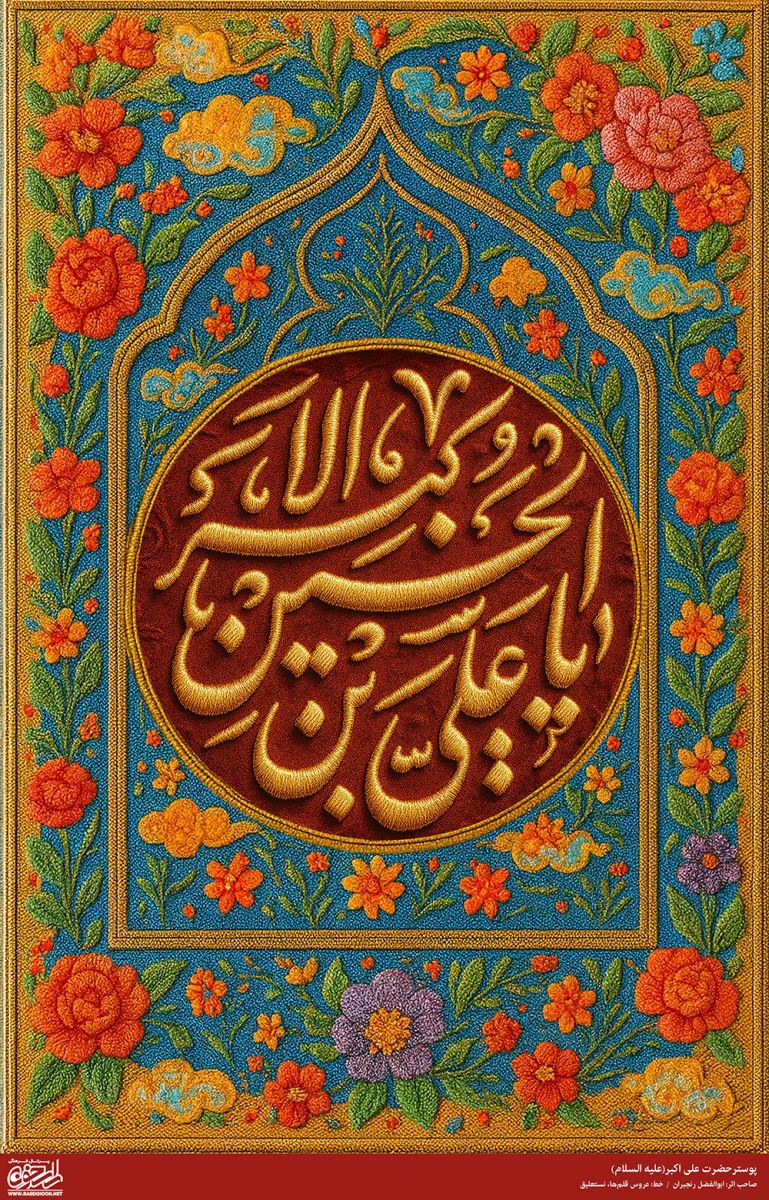 یا علی بن
الحسین
الاکبر
پوستر حضرت علی اکبر(علیه السلام)
صاحب اثر: ابوالفضل رنجبران / خط: عروس قلم‌ها، نستعلیق
WWW.RASEKHOON.NET